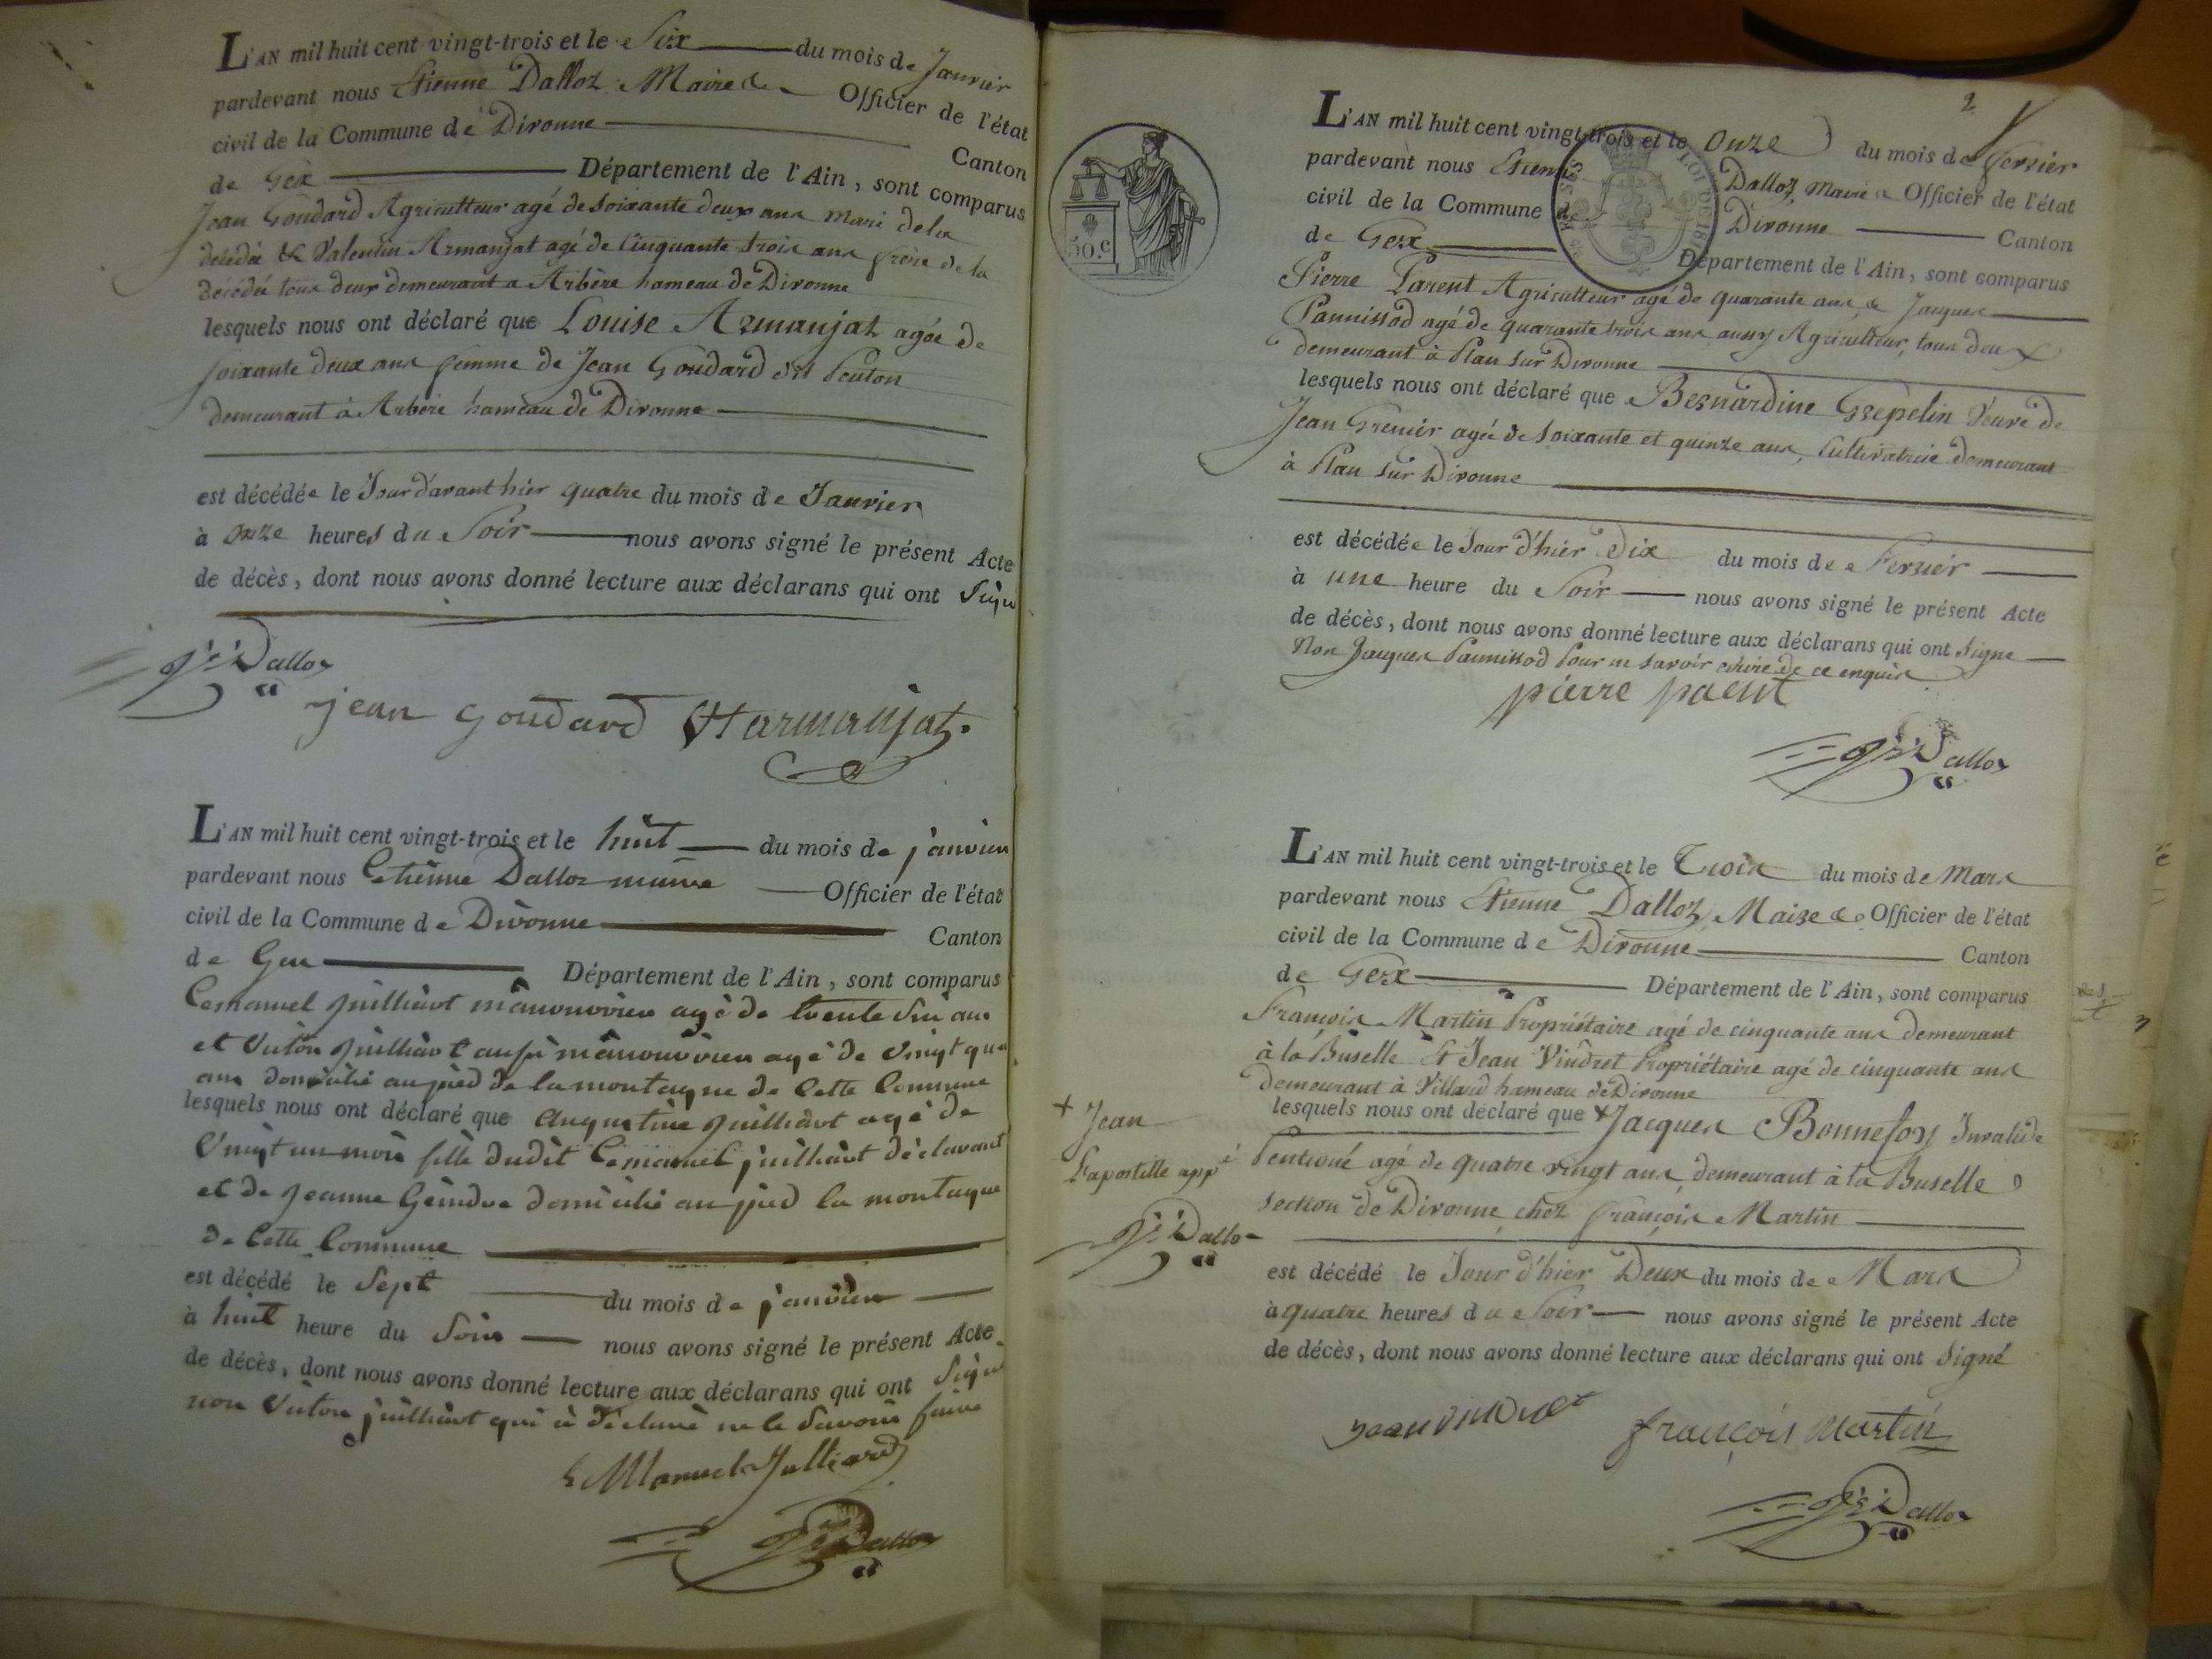 L'AN mil huit cent vingt-trois et le Six du mois de Janvier
pardevant nous Etienne Dalloz Maire & Officier de l'état
civil de la Commune de Divonne Canton
de Gex Département de l'Ain, sont comparus
Jean Goudard Agriculteur agé de soixante deux ans mari de la
décédée & Valentin Armanjat agé de Cinquante trois ans frère de la
décédée tous deux demeurant a Arbère hameau de Divonne
lesquels nous ont déclaré que Louise Armanjat agée de
soixante deux ans femme de Jean Goudard dit Peuton
demeurant à Arbère hameau de Divonne
est décédée le Jour d'avant hier quatre du mois de Janvier
à onze heures du Soir nous avons signé le présent Acte
de décès, dont nous avons donné lecture aux déclarans qui ont Signé
Dalloz
jean goudard Harmanjat.
L'AN mil huit cent vingt-trois et le huit du mois de janvier
pardevant nous Etienne Dalloz maire Officier de l'état
civil de la Commune de Divonne Canton
de Gex Département de l'Ain, sont comparus
Emanuel juilliart manouvrier agé de trente six ans
et Victor juilliart aussi manouvrier agé de vingt
ans domicilié au pied de la montagne de Cette Commune
lesquels nous ont déclaré que augustine juilliart agé de
Vingt un mois fille dudit Emanuel juilliart déclarant
et de jeanne Geindre domicilié au pied la montagne
de Cette Commune
est décédé le Sept du mois de janvier
à huit heure du Soir nous avons signé le présent Acte
de décès, dont nous avons donné lecture aux déclarans qui ont Signé
non Victor juilliart qui a déclaré ne le Savoir faire
Emanuel Julliard
Dalloz
2
50.c
L'AN mil huit cent vingt-trois et le Onze du mois de fevrier
pardevant nous Etienne Dalloz, Maire & Officier de l'état
civil de la Commune de Divonne Canton
de Gex Département de l'Ain, sont comparus
LOI DE 181
Pierre Parent Agriculteur agé de quarante ans, & Jacques
Pannissod agé de quarante trois ans aussy Agriculteur, tous deux
demeurant à Plan sur Divonne
lesquels nous ont déclaré que Bernardine Grepelin Veuve de
Jean Grenier agée de Soixante et quinze ans, Cultivatrice demeurant
à Plan sur Divonne
est décédée le Jour d'hier Dix du mois de Fevrier
à une heure du Soir nous avons signé le présent Acte
de décès, dont nous avons donné lecture aux déclarans qui ont signé
Non Jacques Pannissod Pour ne savoir écrire de ce enquis
pierre paent
Dalloz
L'AN mil huit cent vingt-trois et le Trois du mois de Mars
pardevant nous Etienne Dalloz, Maire & Officier de l'état
civil de la Commune de Divonne Canton
de Gex Département de l'Ain, sont comparus
François Martin Propriétaire agé de cinquante ans demeurant
à la Buselle & Jean Vindret Propriétaire agé de cinquante ans
demeurant à Villard hameau de Divonne
lesquels nous ont déclaré que + Jacques Bonnefoy Invalide
Pentioné agé de quatre vingt ans, demeurant à la Buselle
Section de Divonne chez françois Martin
+ Jean
L'apostille appé
Dalloz
est décédé le Jour d'hier Deux du mois de Mars
à quatre heures du Soir nous avons signé le présent Acte
de décès, dont nous avons donné lecture aux déclarans qui ont Signé
françois Martin
Dalloz